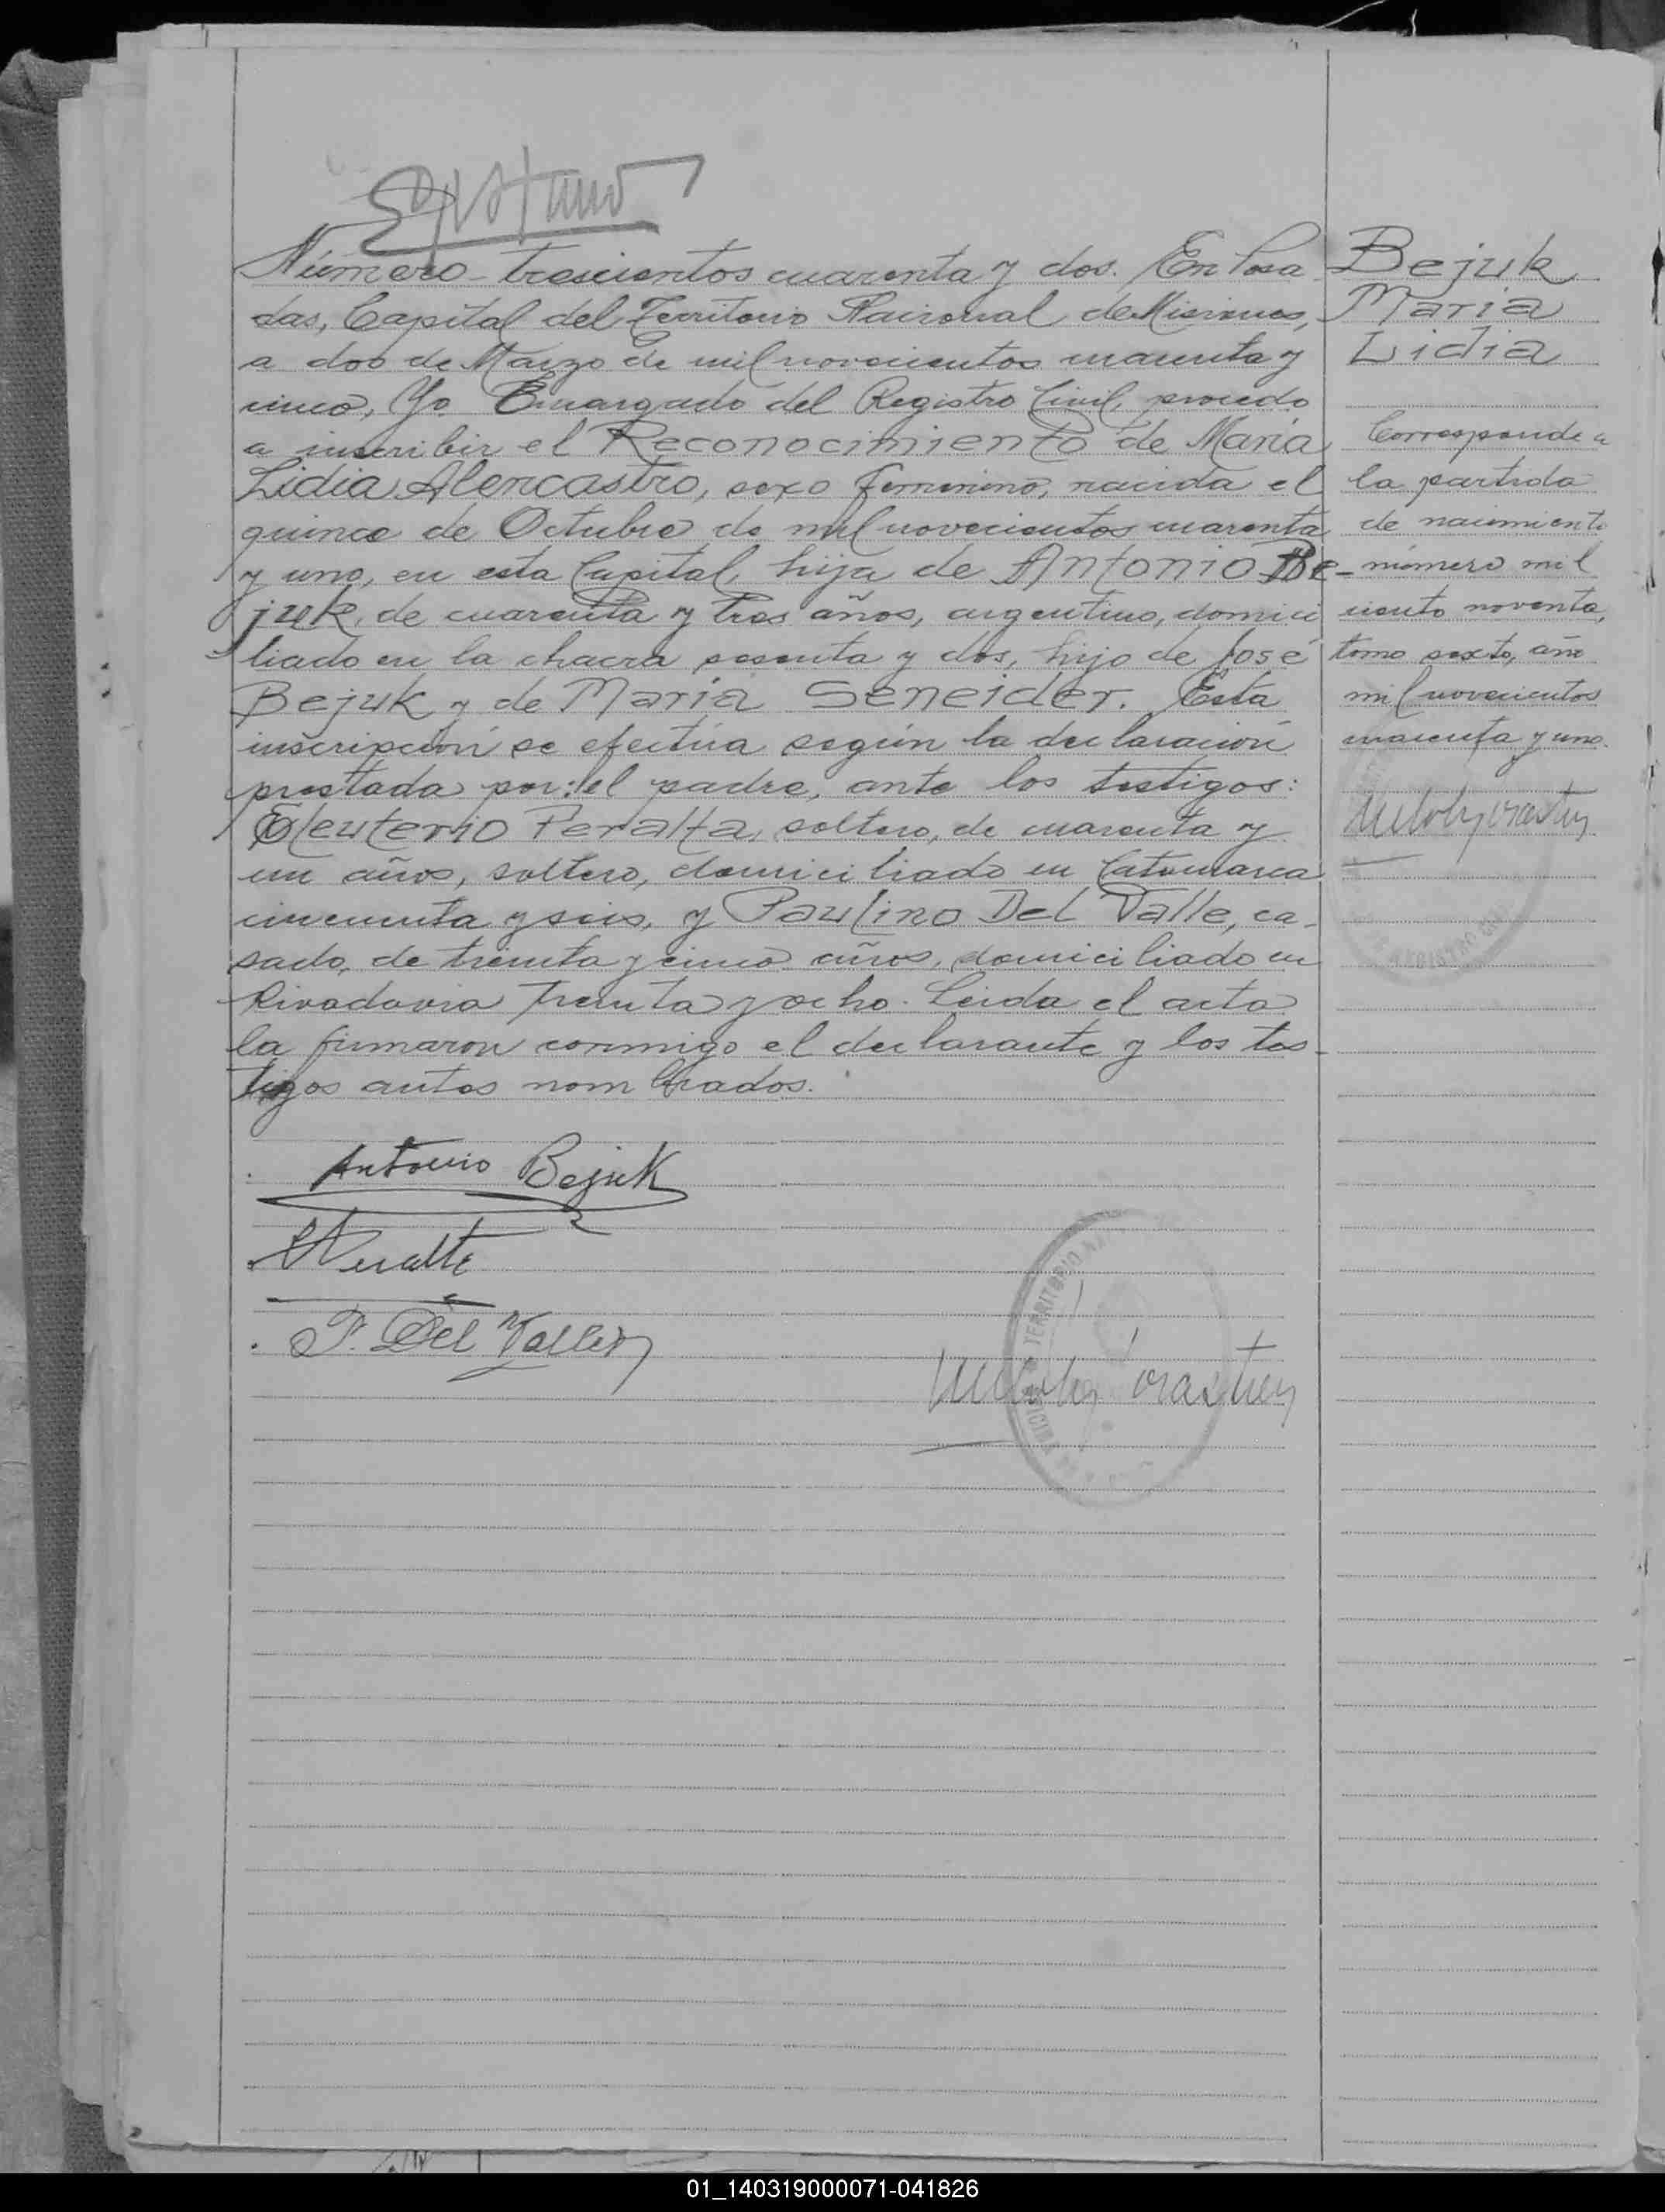 Número trescientos cuarenta y dos. En Posa
das, Capital del Territorio Nacional de Misiones,
a dos de Marzo de mil novecientos cuarenta y
cinco, Yo Encargado del Registro Civil, procedo
a inscribir el Reconocimiento de María
Lidia Alencastro, sexo femenino, nacida el
quince de Octubre de mil novecientos cuarenta
y uno, en esta Capital, hija de Antonio Be-
juk, de cuarenta y tres años, argentino, domici
liado en la chacra sesenta y dos, hijo de José
Bejuk y de María Seneider. Esta
inscripción se efectúa según la declaración
prestada por: el padre, ante los testigos:
Eleuterio Peralta, soltero, de cuarenta y
un años, soltero, domiciliado en Catamarca
cincuenta y seis, y Paulino Del Valle, ca-
sado, de treinta y cinco años, domiciliado en
Rivadavia treinta y ocho. Leida el acta
la firmaron conmigo el declarante y los tes-
tigos antes nombrados.
Antonio Bejuk
Peralta
P. Del Valle
TERRITORIO
Bejuk
María
Lidia
Corresponde a
la partida
de nacimiento
número mil
ciento noventa,
tomo sexto, año
mil novecientos
cuarenta y uno.
REGISTRO
01_140319000071-041826